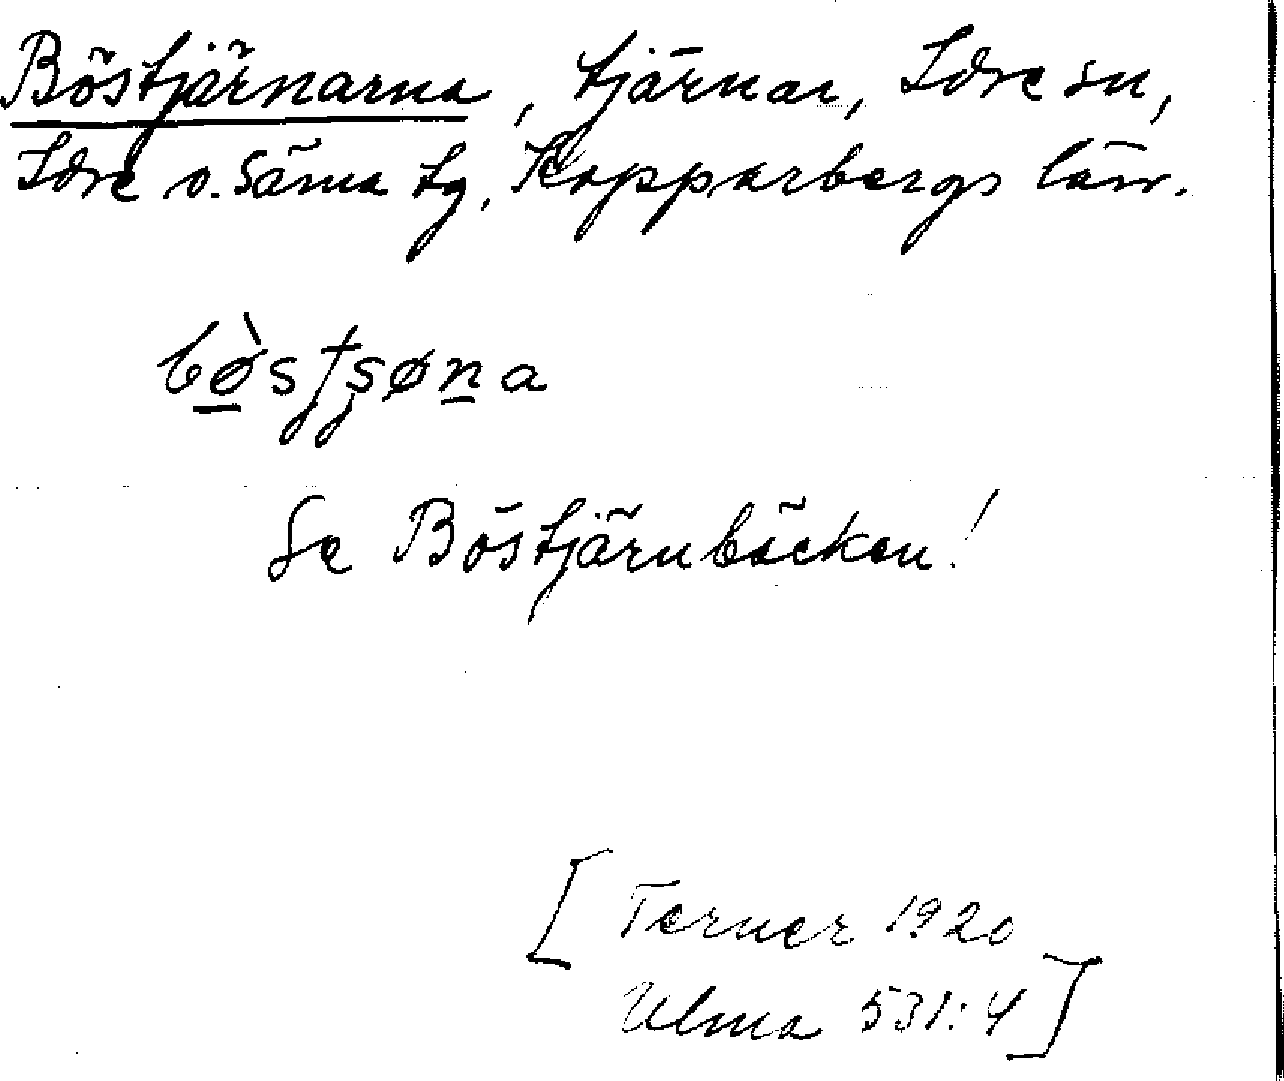 Böstjärnarna, tjärnar, Idre sn,
Idre o. Särna tg, Kopparbergs län.
Se Böstjärnbäcken!
[Terner 1920
Ulma 531:4]